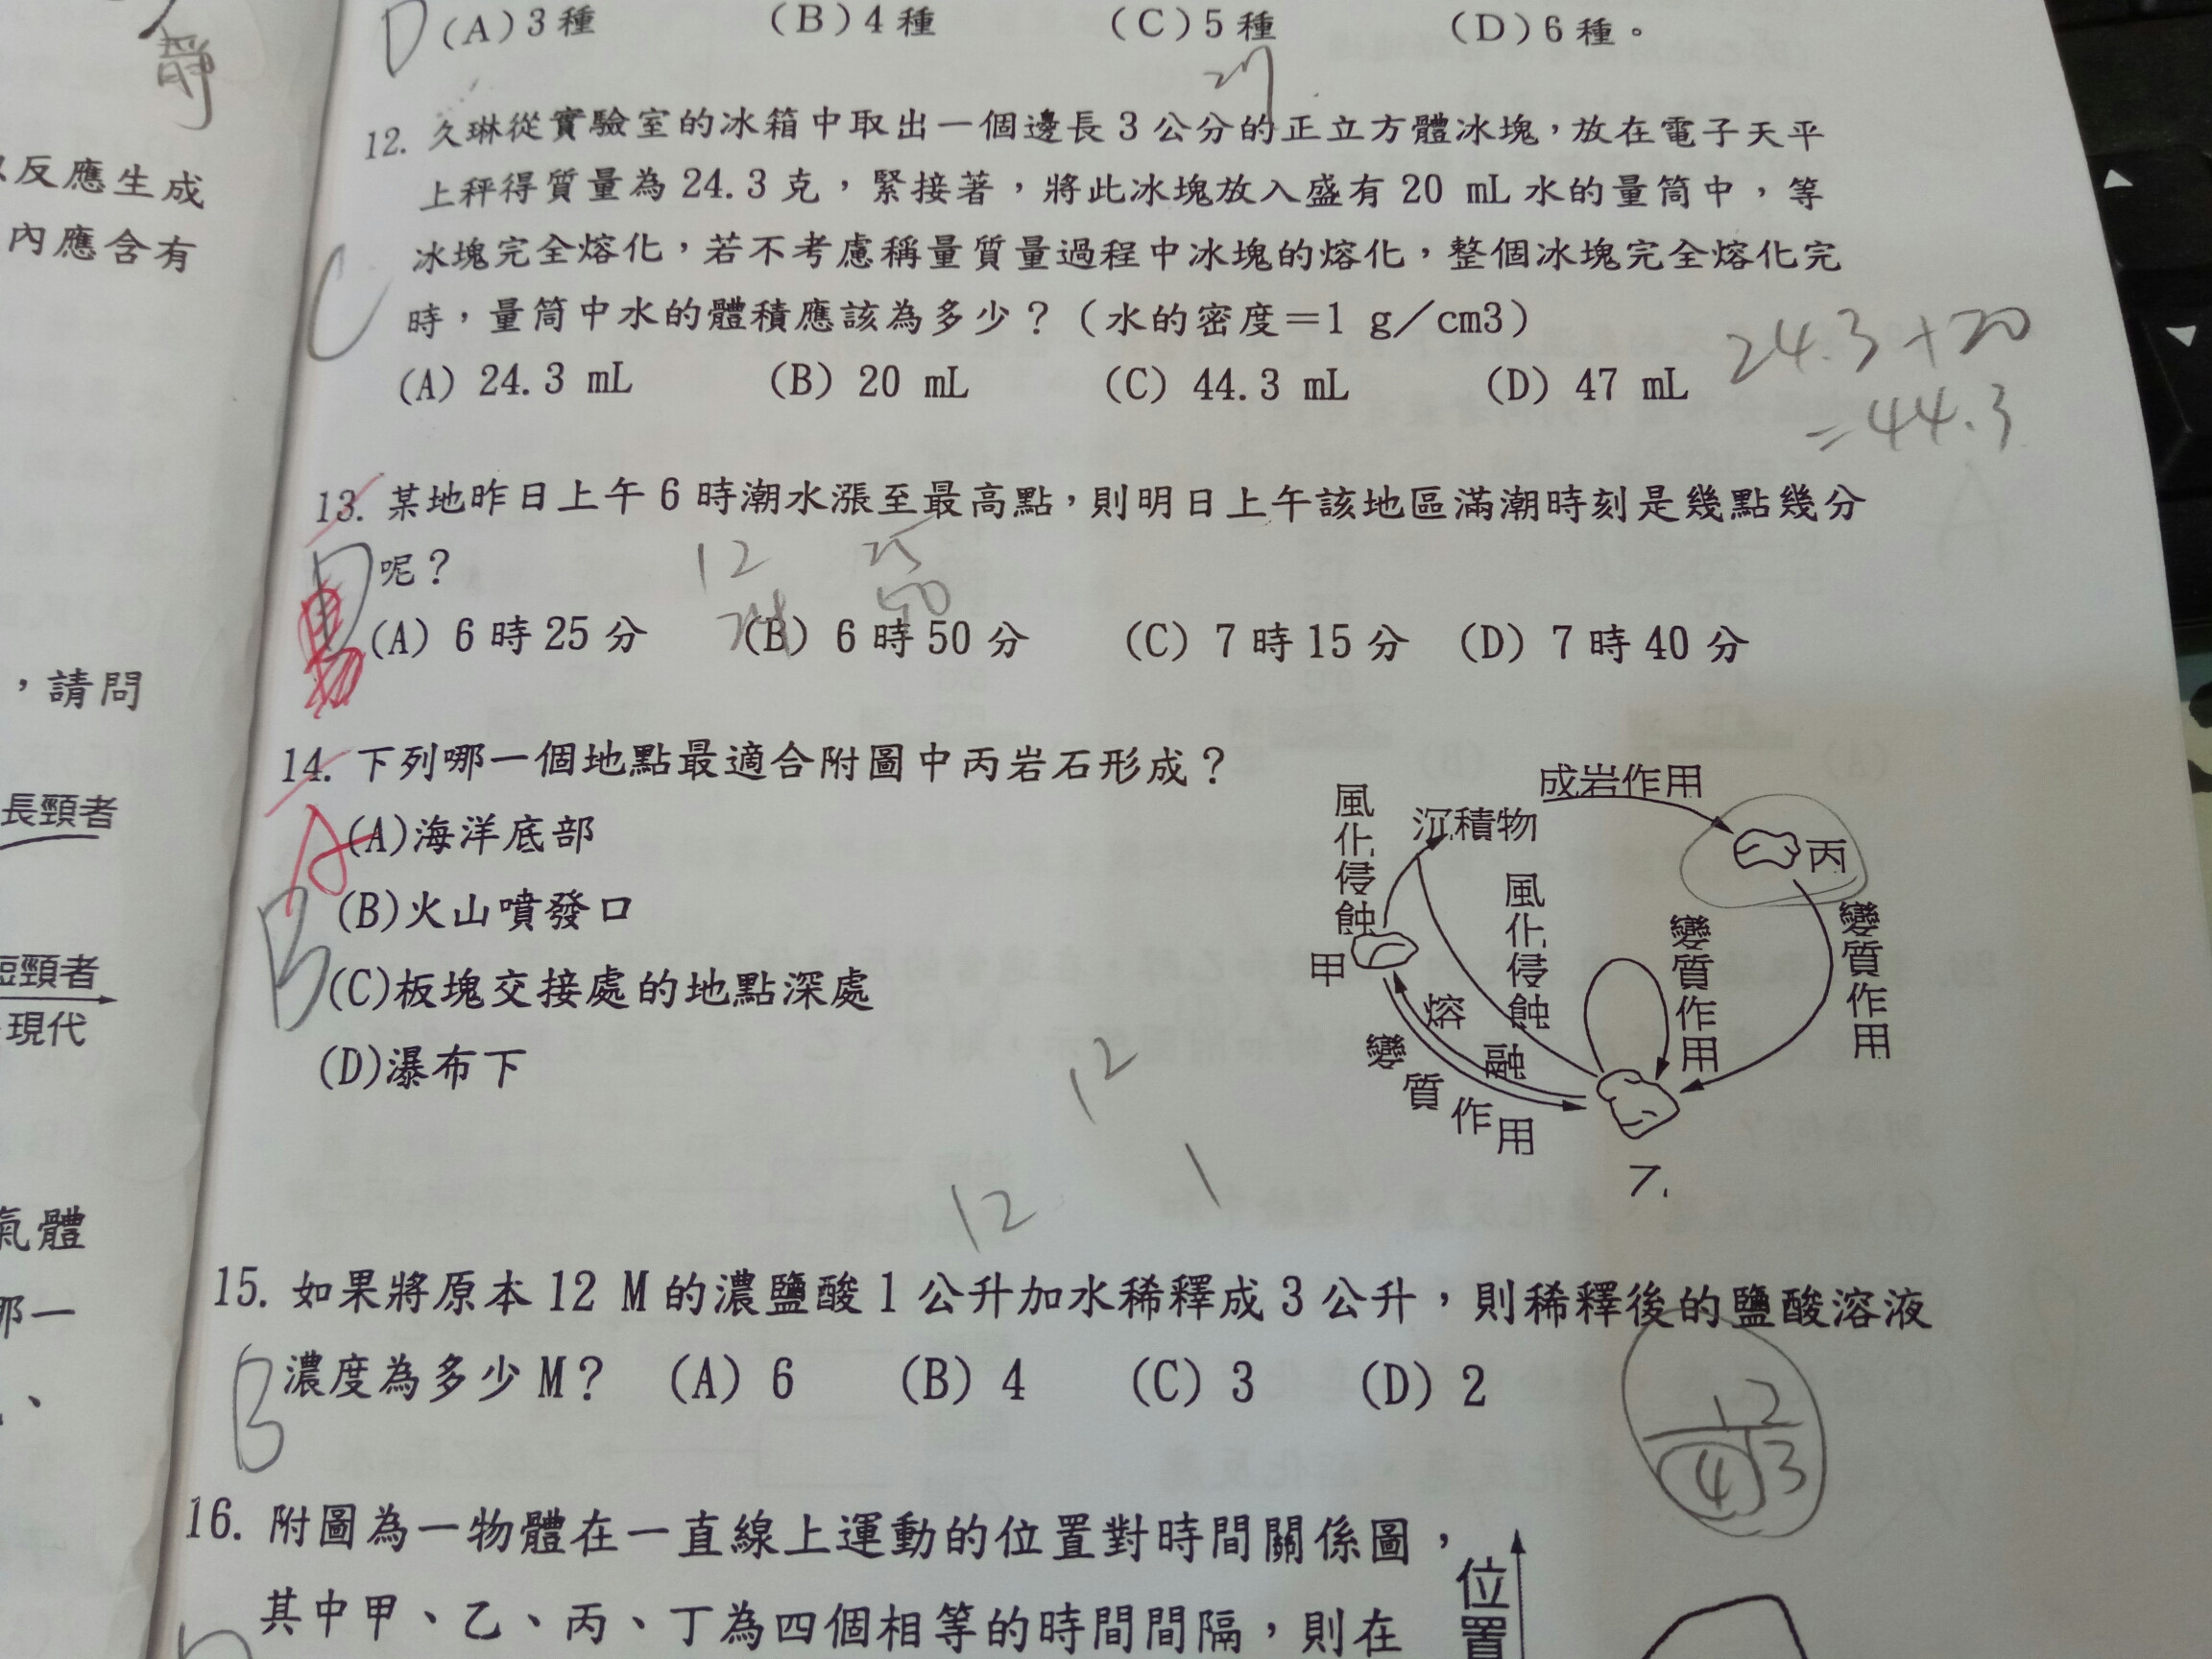 靜
反應生成
內應含有
,請問
長頸者
短頸者
現代
氣體
哪一
、
D (A)3種 (B)4種 (C)5種 (D)6種。
27
12. 久琳從實驗室的冰箱中取出一個邊長3公分的正立方體冰塊,放在電子天平
上秤得質量為 24.3 克,緊接著,將此冰塊放入盛有 20 mL 水的量筒中,等
冰塊完全熔化,若不考慮稱量質量過程中冰塊的熔化,整個冰塊完全熔化完
時,量筒中水的體積應該為多少?(水的密度=1 g/cm3)
C
(A) 24.3 mL (B) 20 mL (C) 44.3 mL (D) 47 mL
24.3+20
=44.3
13. 某地昨日上午6時潮水漲至最高點,則明日上午該地區滿潮時刻是幾點幾分
呢?
12 25
24 50
D
(A) 6時25分 (B) 6時50分 (C) 7時15分 (D) 7時40分
14. 下列哪一個地點最適合附圖中丙岩石形成?
A
(A)海洋底部
(B)火山噴發口
B
(C)板塊交接處的地點深處
(D)瀑布下
成岩作用
沉積物
風化侵蝕
丙
風化侵蝕
變質作用
變質作用
甲
熔融
變質作用
12
1
12
15. 如果將原本12 M的濃鹽酸1公升加水稀釋成3公升,則稀釋後的鹽酸溶液
濃度為多少M? (A) 6 (B) 4 (C) 3 (D) 2
B
12
4 3
16. 附圖為一物體在一直線上運動的位置對時間關係圖,
其中甲、乙、丙、丁為四個相等的時間間隔,則在
位置